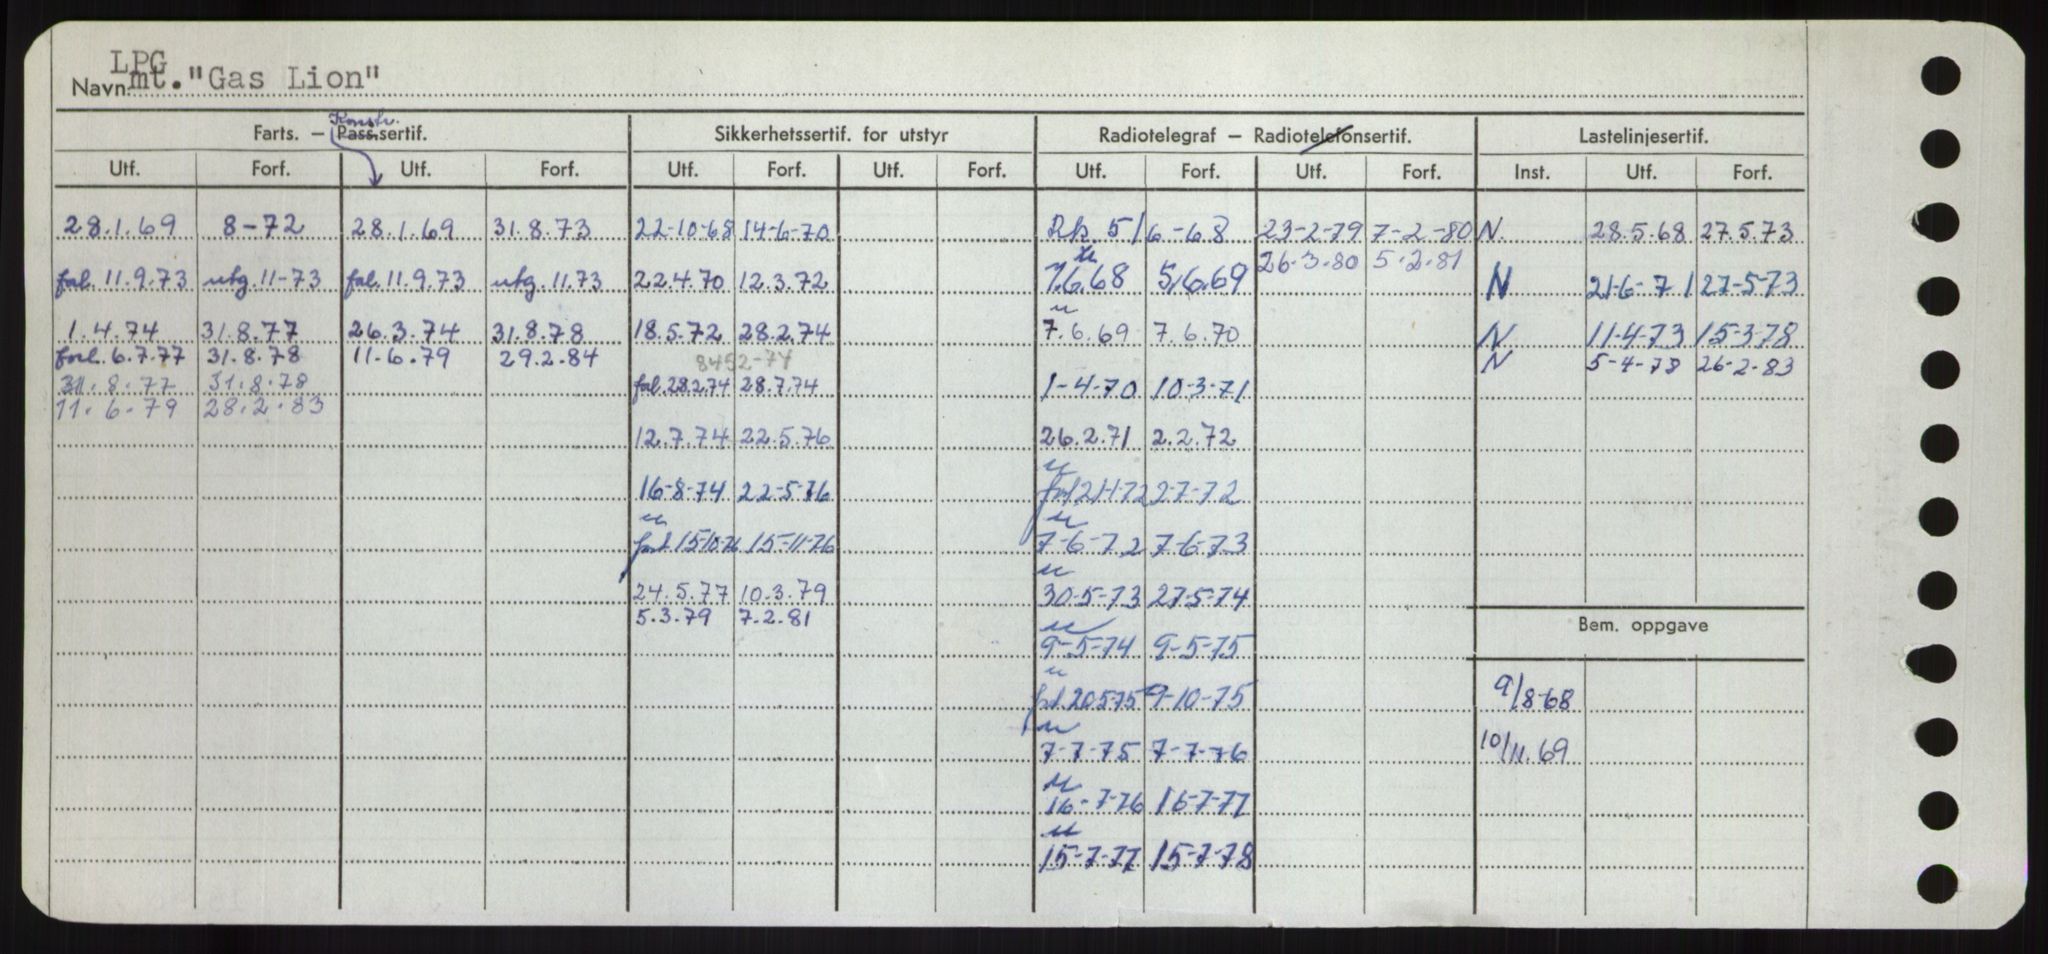 LPG
Navn mt. "Gas Lion"
Konstr.
Farts. – Pass.sertif. Sikkerhetssertif. for utstyr Radiotelegraf – Radiotelefonsertif. Lastelinjesertif.
Utf. Forf. Utf. Forf. Utf. Forf. Utf. Forf. Utf. Forf. Utf. Forf. Inst. Utf. Forf.
28.1.69 8-72 28.1.69 31.8.73 22-10-68 14-6-70 5/6-68 23-2-79 7-2-80 N. 28.5.68 27.5.73
26.3.80 5.2.81
forl. 11.9.73 utg. 11-73 forl. 11.9.73 utg. 11.73 22.4.70 12.3.72 7.6.68 5.6.69 N 21-6-71 27-5-73
1.4.74 31.8.77 26.3.74 31.8.78 18.5.72 28.2.74 7.6.69 7.6.70 N 11-4-73 15-3-78
forl. 6.7.77 31.8.78 11.6.79 29.2.84 8452-74 N 5-4-78 26-2-83
31.8.77 31.8.78 forl. 28.2.74 28.7.74 1-4-70 10-3-71
11.6.79 28.2.83
12.7.74 22.5.76 26.2.71 2.2.72
16-8-74 22-5-76 forl 21-1-72 2-7-72
forl 15-10-76 15-11-76 7-6-72 7-6-73
24.5.77 10.3.79 30-5-73 27-5-74
5.3.79 7.2.81
Bem. oppgave
9-5-74 9-5-75
9/8-68
forl. 20575 9-10-75
10/11.69
7-7-75 7-7-76
16-7-76 16-7-77
15-7-77 15-7-78